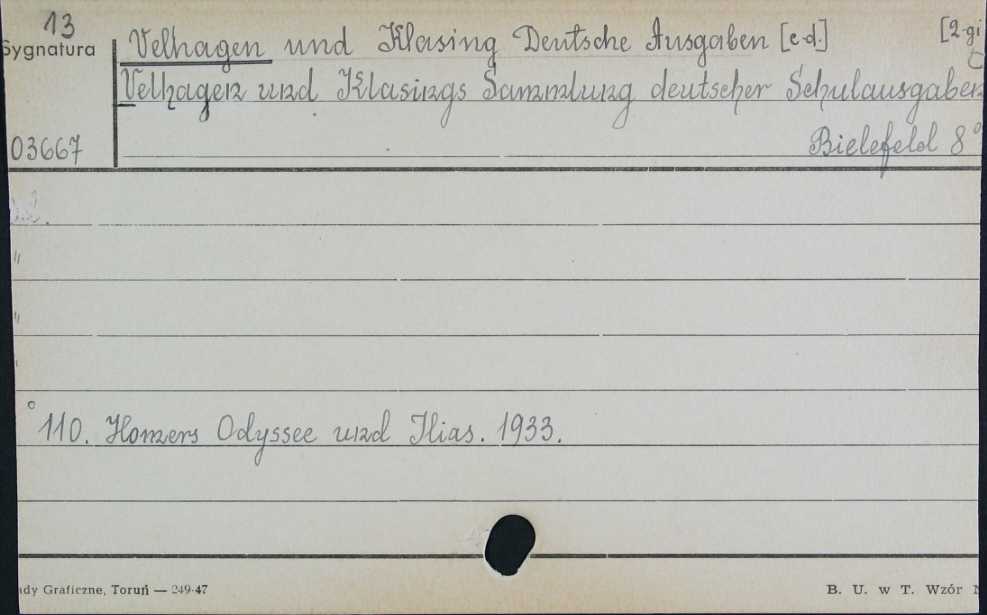 13
Sygnatura
Velhagen und Klasing Deutsche Ausgaben [e.d.] [2-gi
Velhagen und Klasings Sammlung deutscher Schulausgaben
03667
Bielefeld 8°
"
"
110. Homers Odyssee und Ilias. 1933.
ady Graficzne, Toruń — 249-47
B. U. w T. Wzór N